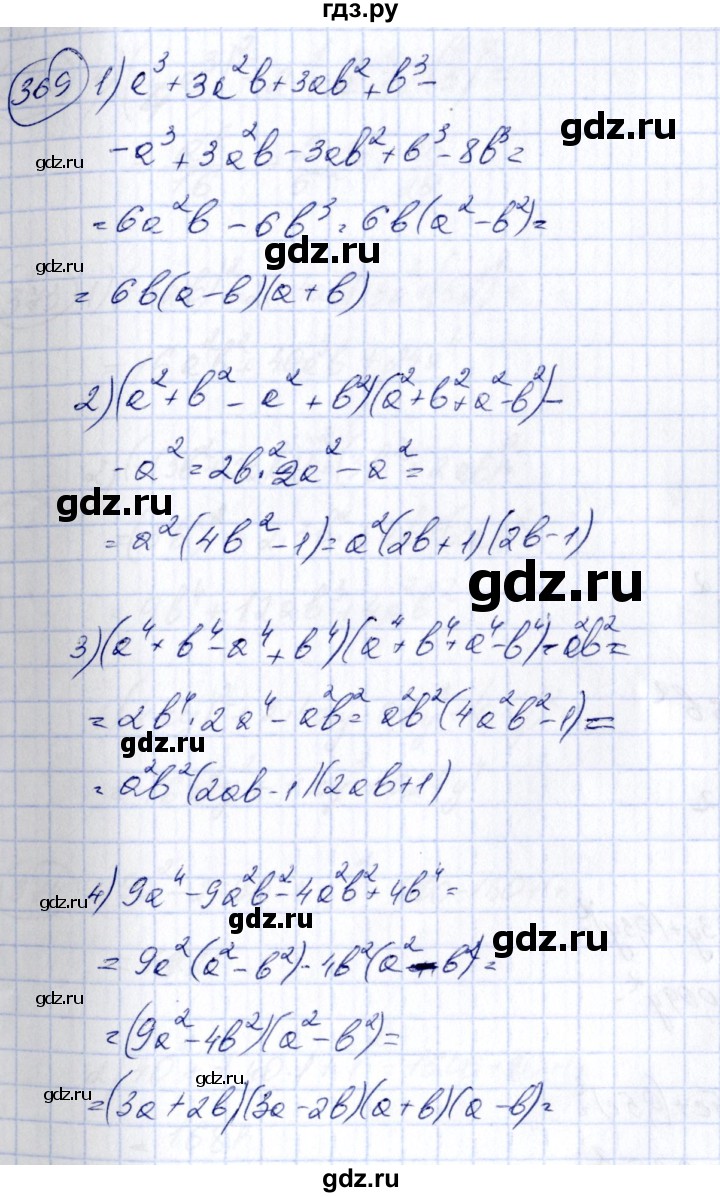 гдз.ру
369 1) a³ + 3a²b + 3ab² + b³ -
- a³ + 3a²b - 3ab² + b³ - 8b³ =
gdz.ru
gdz.ru
= 6a²b - 6b³ = 6b(a² - b²) =
gdz.ru
gdz.ru
= 6b(a - b)(a + b)
2) (a² + b² - a² + b²)(a² + b² + a² - b²) -
- a² = 2b² · 2a² - a² =
gdz.ru
= a²(4b² - 1) = a²(2b + 1)(2b - 1)
gdz.ru
3) (a⁴ + b⁴ - a⁴ + b⁴)(a⁴ + b⁴ + a⁴ - b⁴) - a²b² =
= 2b⁴ · 2a⁴ - a²b² = a²b²(4a²b² - 1) =
gdz.ru
= a²b²(2ab - 1)(2ab + 1)
4) 9a⁴ - 9a²b² - 4a²b² + 4b⁴ =
gdz.ru
gdz.ru
gdz.ru
= 9a²(a² - b²) - 4b²(a² - b²) =
gdz.ru
= (9a² - 4b²)(a² - b²) =
gdz.ru
= (3a + 2b)(3a - 2b)(a + b)(a - b) =
gdz.ru